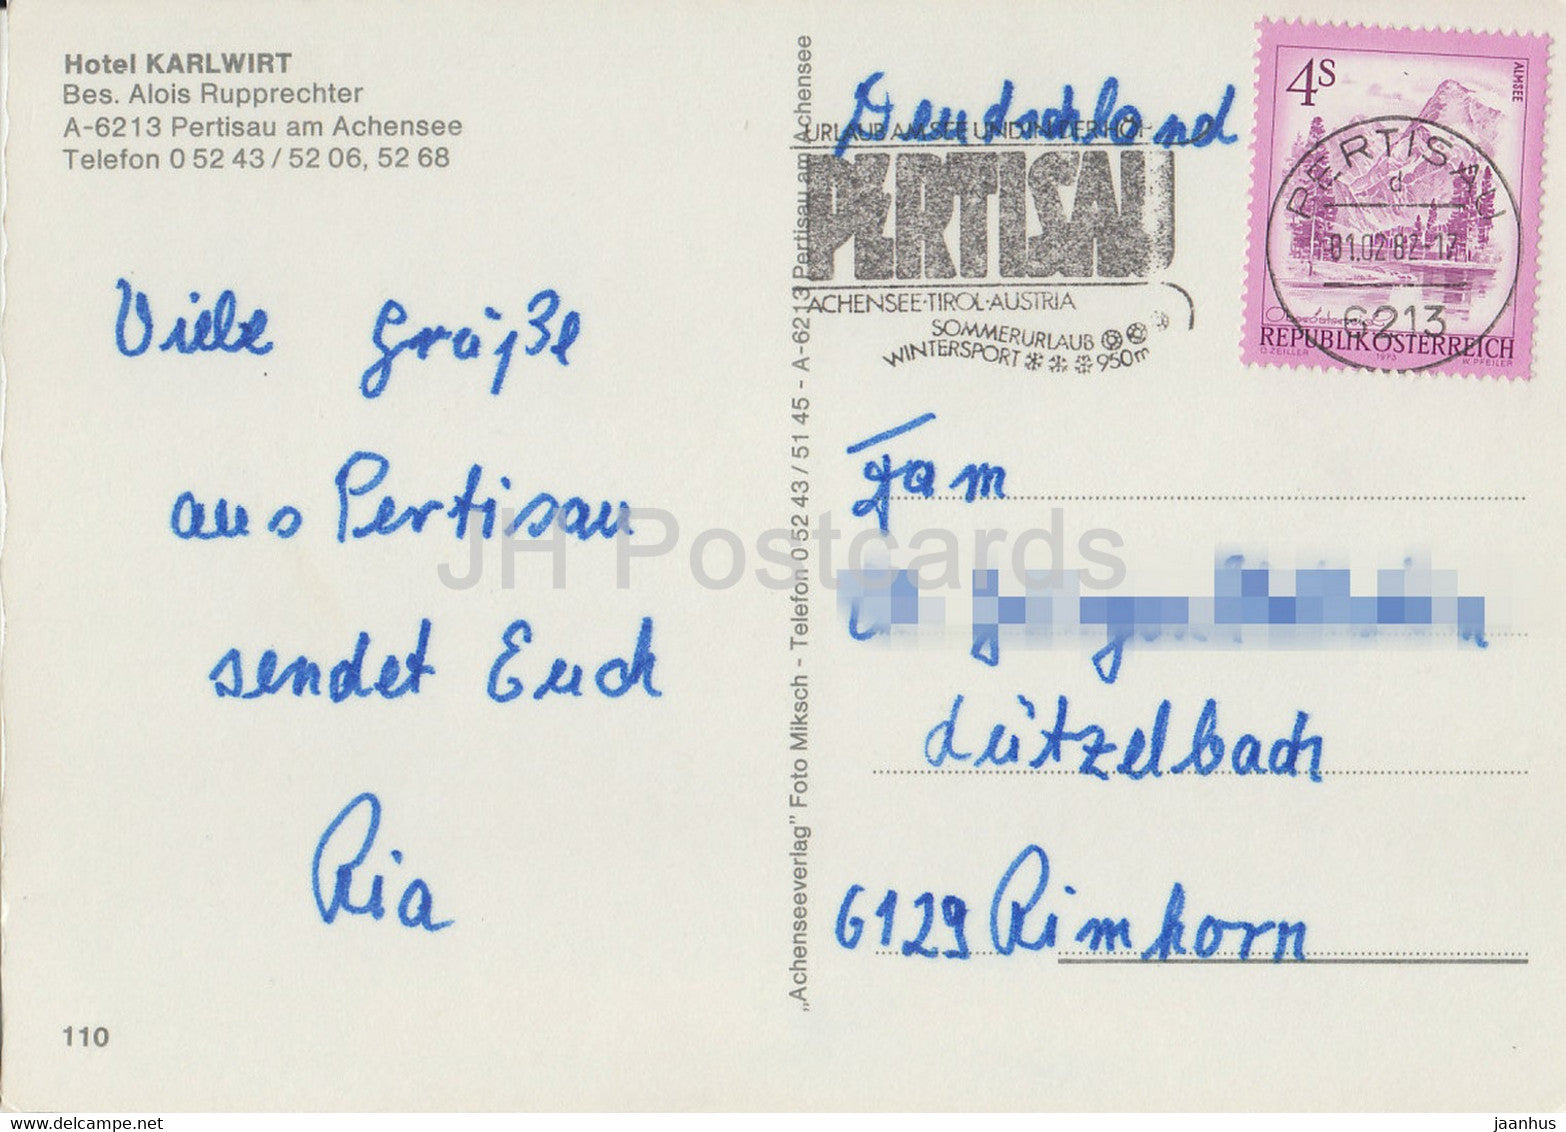 Hotel KARLWIRT
Bes. Alois Rupprechter
A-6213 Pertisau am Achensee
Telefon 0 52 43 / 52 06, 52 68
Viele Grüße
aus Pertisau
sendet Euch
Ria
110
„Achenseeverlag” Foto Miksch - Telefon 0 52 43 / 51 45 - A-6213 Pertisau am Achensee
Deutschland
URLAUB AM SEE UND IN DER HÖH
PERTISAU
ACHENSEE·TIROL·AUSTRIA
SOMMERURLAUB
WINTERSPORT 950m
4S
ALMSEE
PERTISAU
d
01.02.82-17
6213
REPUBLIK ÖSTERREICH
O. ZEILLER 1973 W. PFEILER
Fam
Lützelbach
6129 Rimhorn
JH Postcards
www.delcampe.net
jaanhus